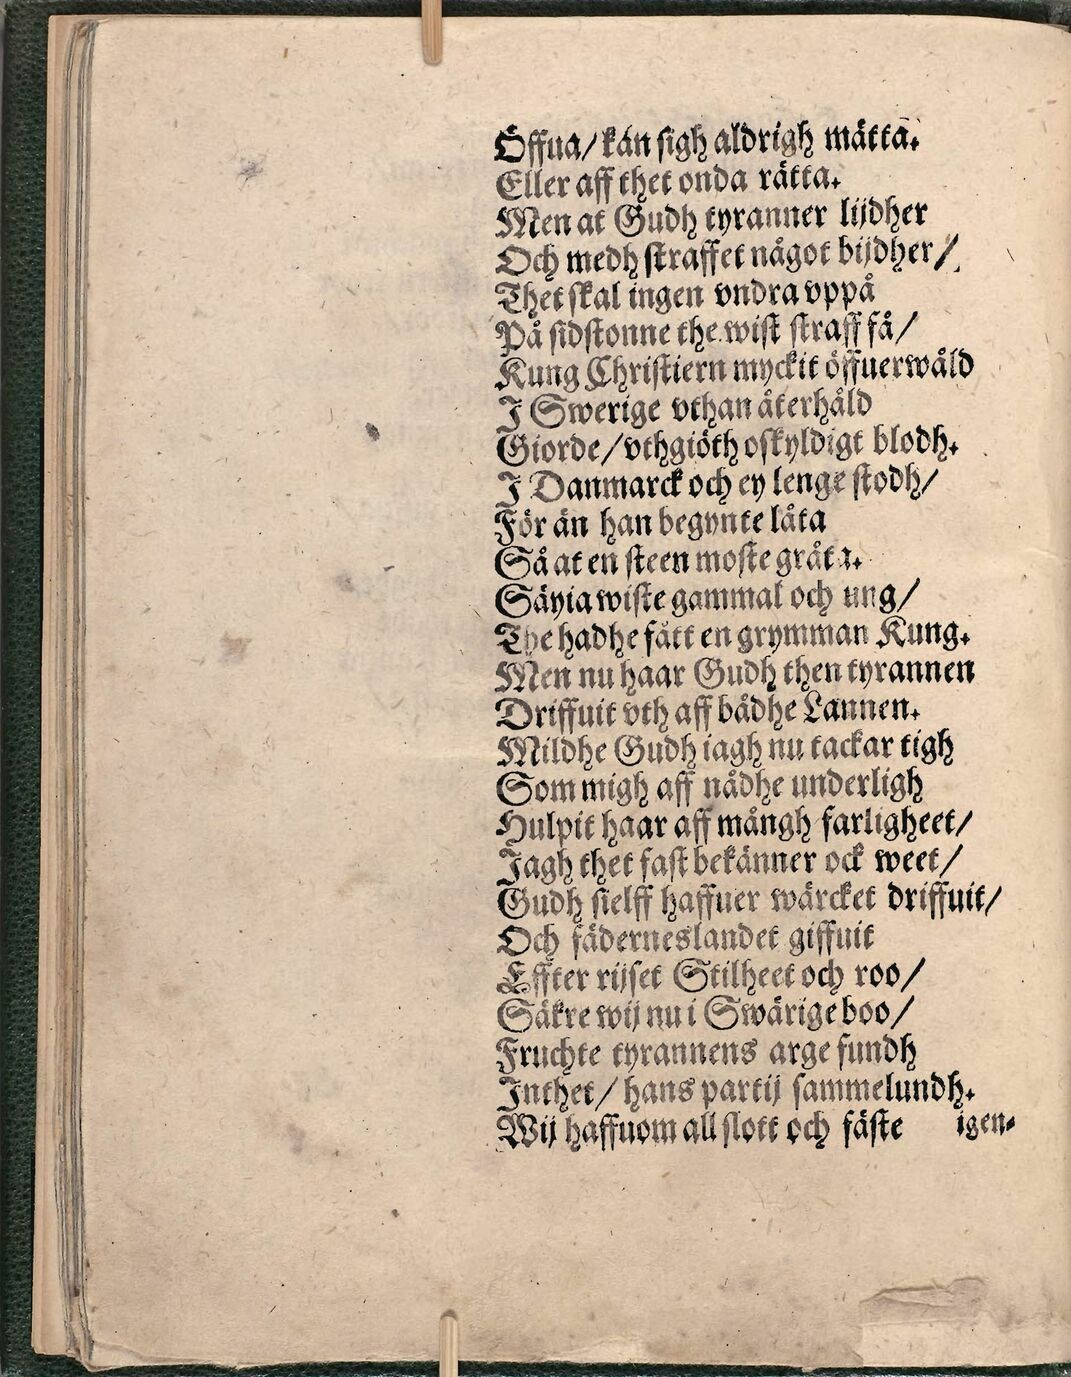 Öffua/ kan sigh aldrigh mätta.
Eller aff thet onda rätta.
Men at Gudh tyranner lijdher
Och medh straffet något bijdher/
Thet skal ingen vndra vppå
På sidstonne the wist straff få/
Kung Christiern myckit öffuerwåld
I Swerige vthan återhåld
Giorde/ vthgiöth oskyldigt blodh.
I Danmarck och ey lenge stodh/
För än han begynte låta
Så at en steen moste gråta.
Säyia wiste gammal och ung/
The hadhe fått en grymman Kung.
Men nu haar Gudh then tyrannen
Driffuit vth aff bådhe Lannen.
Mildhe Gudh iagh nu tackar tigh
Som migh aff nådhe underligh
Hulpit haar aff mångh farligheet/
Jagh thet fast bekänner ock weet/
Gudh sielff haffuer wärcket driffuit/
Och fäderneslandet giffuit
Effter rijset Stilheet och roo/
Säkre wij nu i Swärige boo/
Fruchte tyrannens arge fundh
Inthet/ hans partij sammelundh.
Wij haffuom all slott och fäste igen⸗